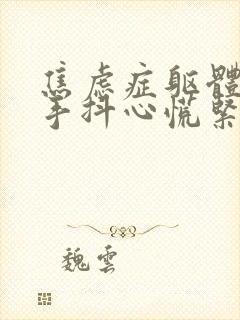 焦虑症躯體
手抖心慌緊
魏雲